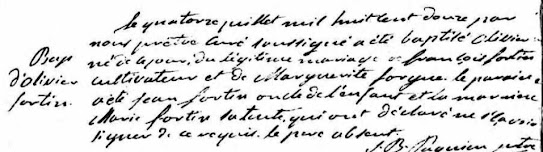 Le quatorze juillet mil huit cent douze par
nous prêtre curé soussigné a été baptisé Olivier
Bap
d'olivier
fortin.
né de ce jour, du légitime mariage de françois fortin
cultivateur et de Marguerite forgue. le parain
a été jean fortin oncle de l'enfant et la maraine
Marie fortin sa tante, qui ont déclaré ne savoir
signer de ce requis. le pere absent.
J. B. Paquien ptre